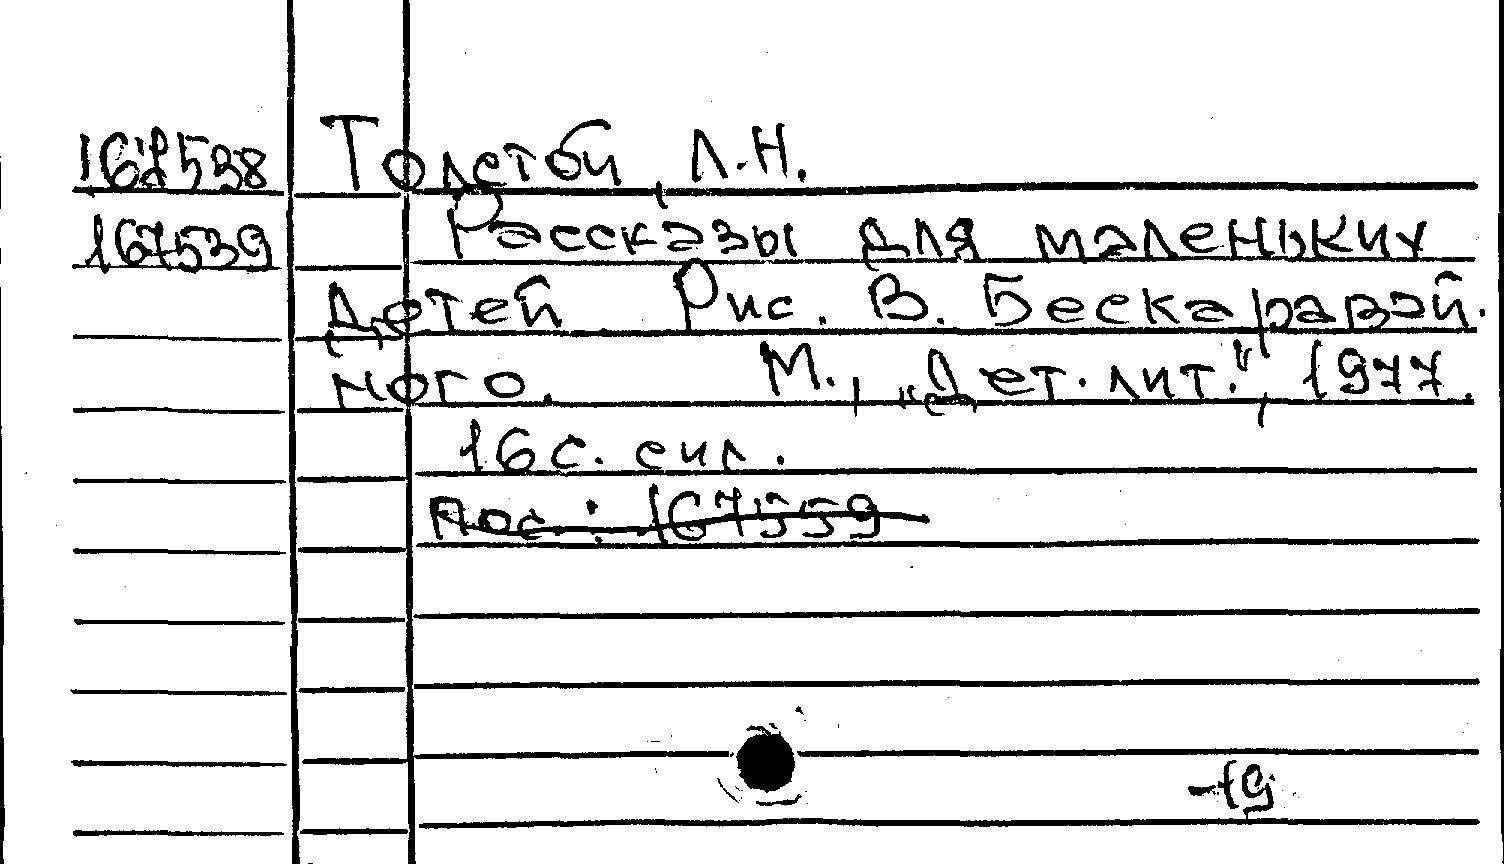 167538 Толстой, Л.Н.
167539 Рассказы для маленьких
детей Рис. В. Бескаравай.
ного. М., „Дет. лит.", 1977.
16 с. с ил.
Пос.: 167559
-19